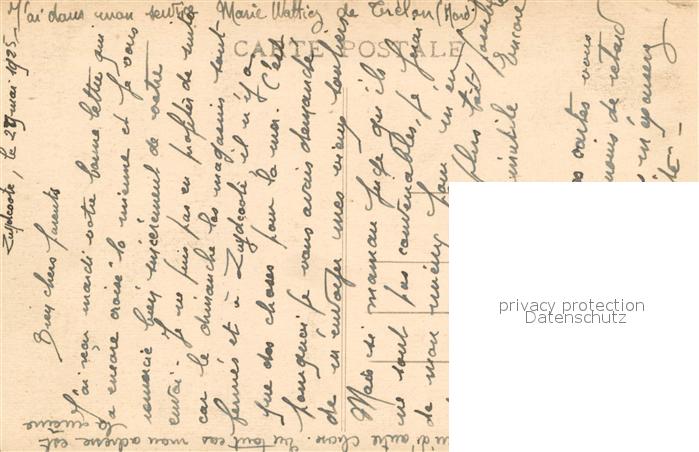 J'ai dans mon service Marie Wattiez de Trélon (Nord)
CARTE POSTALE
Zuydcoote, le 27 mai 1925
Bien chers parents
J'ai reçu mardi votre bonne lettre qui
a encore croisé la mienne et je vous
remercie bien sincèrement de votre
envoi. Je ne puis pas en profiter de suite
car le dimanche les magasins sont
fermés et à Zuydcoote il n'y a
que des choses pour la mer. C'est
pourquoi je vous avais demandé
de m'envoyer mes vieux
Mais si maman juge qu'ils
ne sont pas convenables, je
de mon mieux pour m'en
plus tôt possible
inutile encore
cartes vous
moins de retard
d'autre chose. En tout cas mon adresse est
la même
privacy protection
Datenschutz